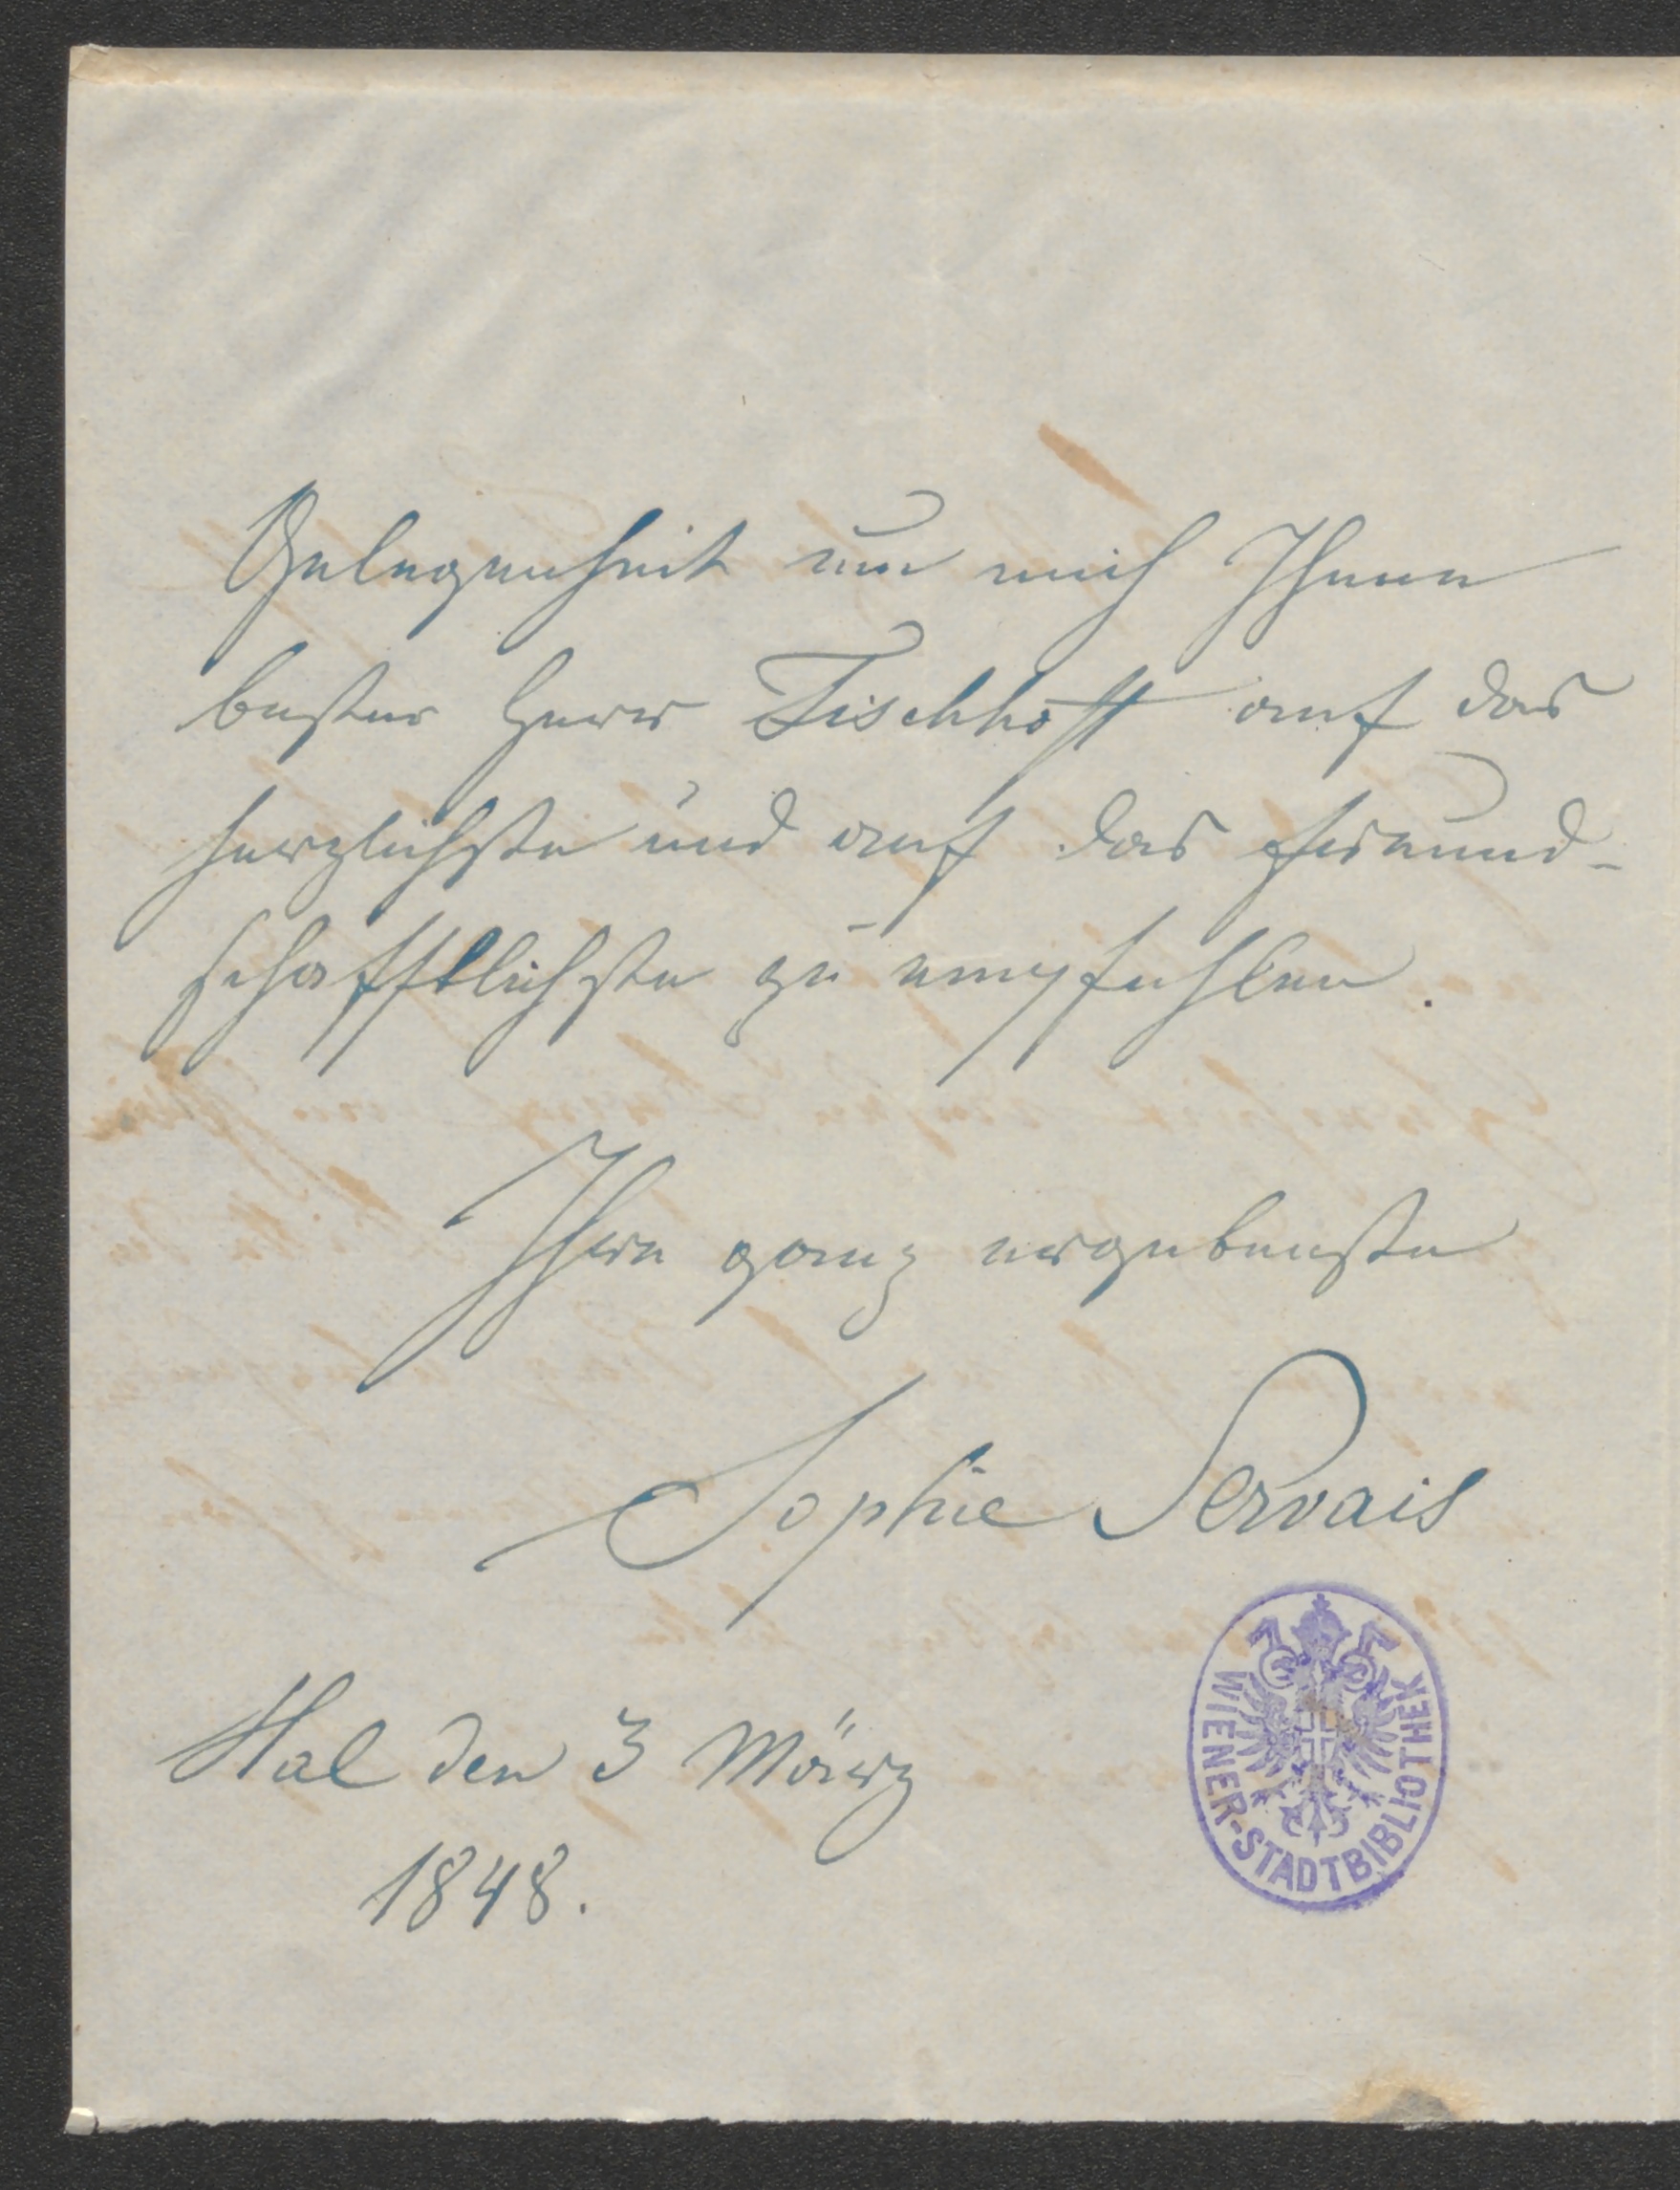 Gelegenheit um mich Ihnen
bester Herr Fischhoff auf das
herzlichste und auf das freund-
schafftlichste zu empfehlen.
Ihre ganz ergebenste
Sophie Servais
Hal den 3 März
1848.
WIENER-STADTBIBLIOTHEK